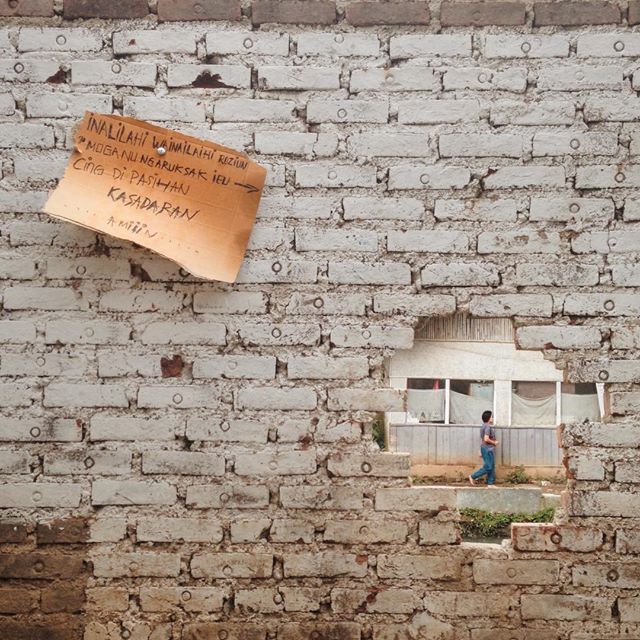 INALILAHI WAINAILAIHI ROZIUN
"MOGA NU NGARUKSAK IEU
CING DI PASIHAN
KASADARAN
...... AMIIN ........